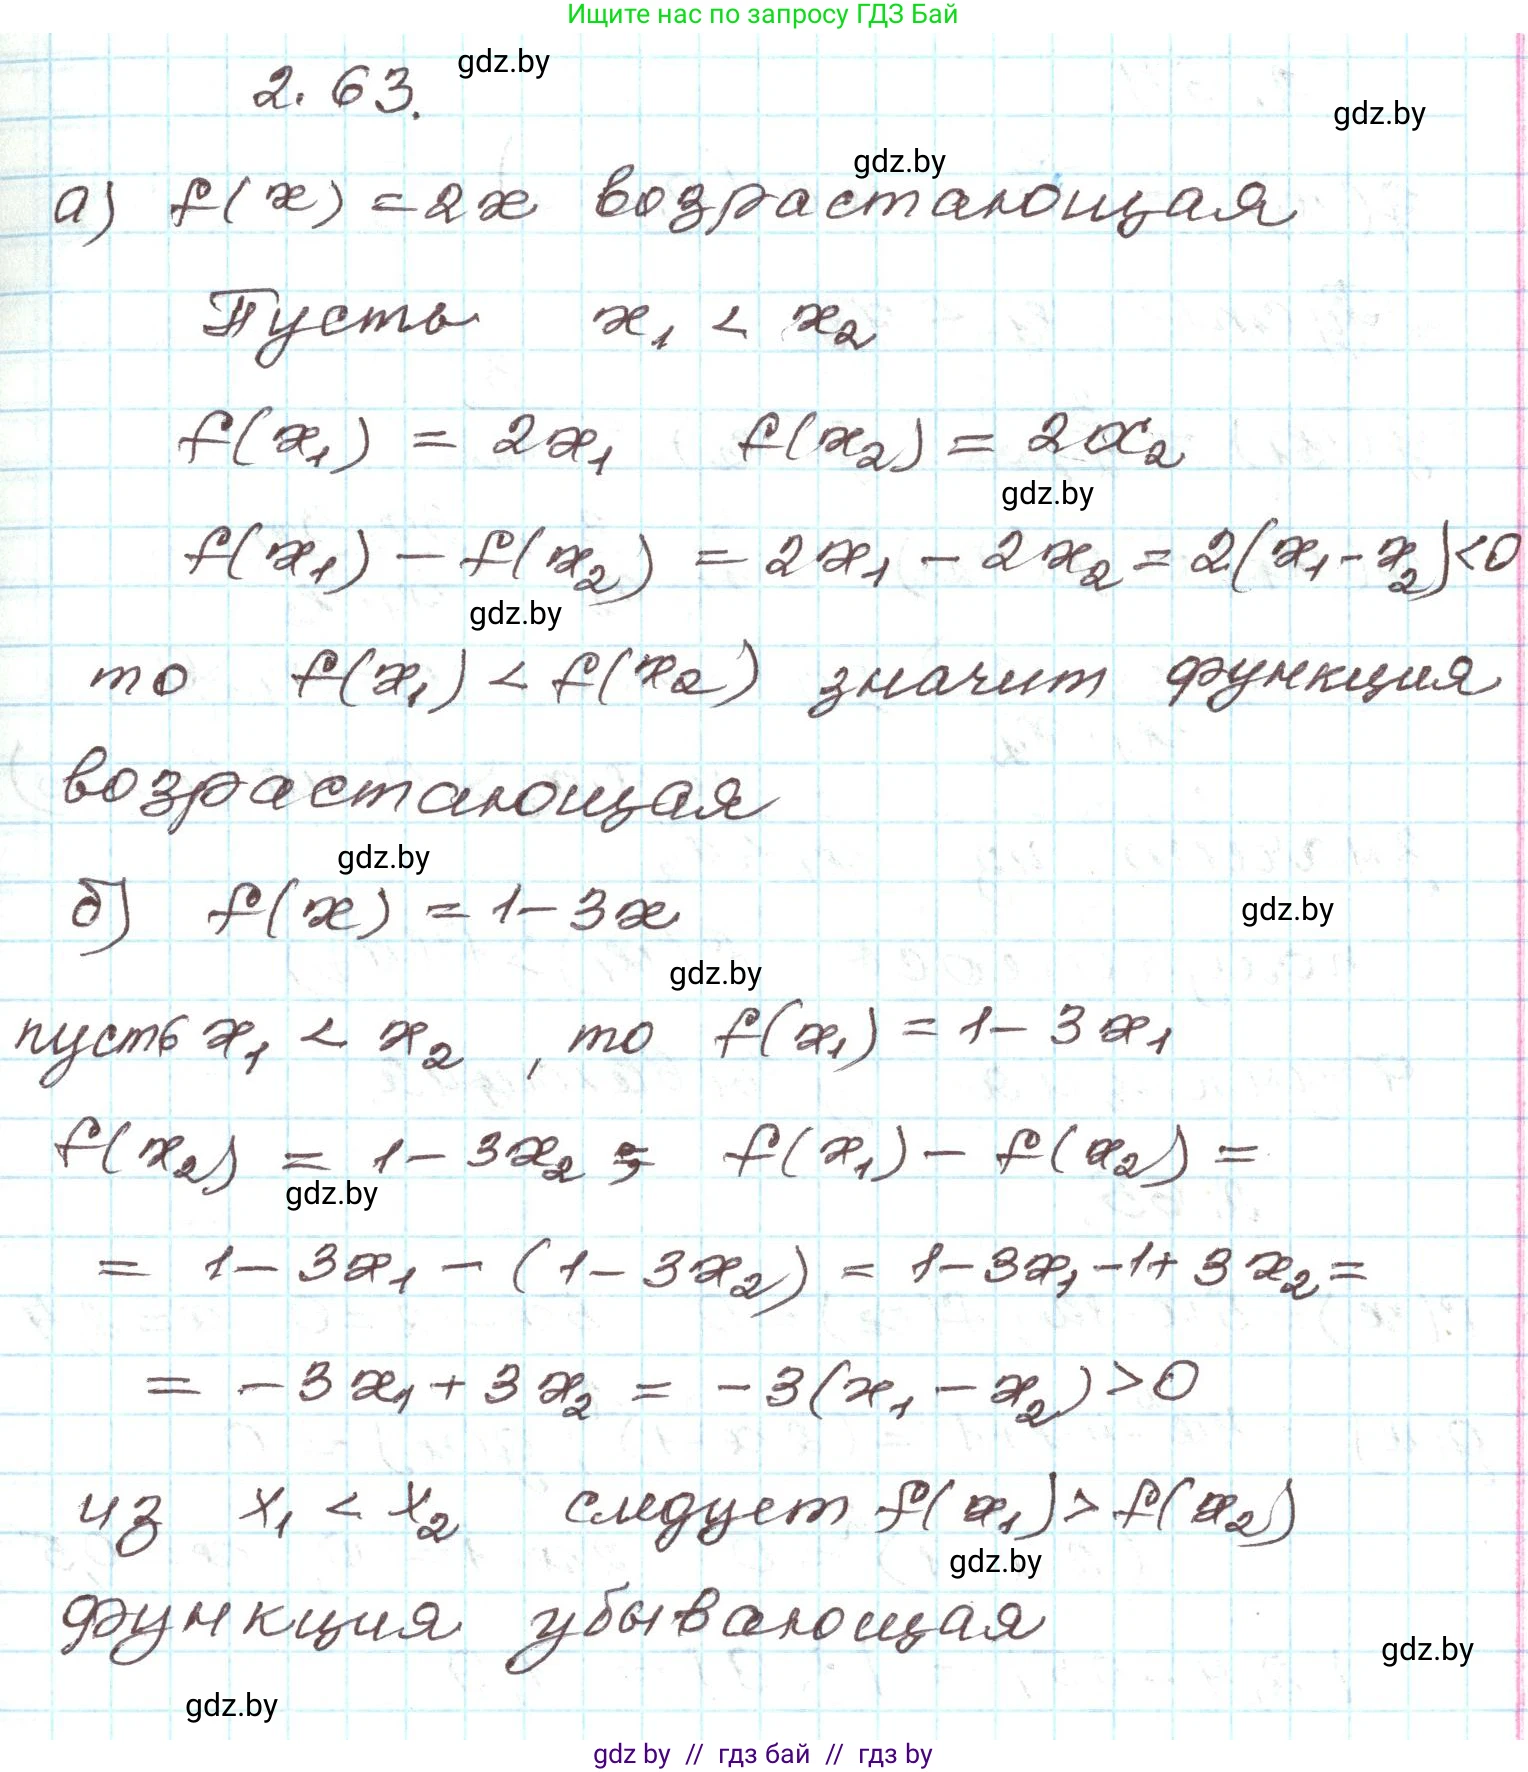 Ищите нас по запросу ГДЗ Бай
2.63. gdz.by
gdz.by
gdz.by
а) f(x) = 2x возрастающая
Пусть x₁ < x₂
f(x₁) = 2x₁ f(x₂) = 2x₂
gdz.by
f(x₁) - f(x₂) = 2x₁ - 2x₂ = 2(x₁ - x₂) < 0
gdz.by
то f(x₁) < f(x₂) значит функция
возрастающая
gdz.by
б) f(x) = 1 - 3x
gdz.by
gdz.by
пусть x₁ < x₂, то f(x₁) = 1 - 3x₁
f(x₂) = 1 - 3x₂; f(x₁) - f(x₂) =
gdz.by
= 1 - 3x₁ - (1 - 3x₂) = 1 - 3x₁ - 1 + 3x₂ =
= -3x₁ + 3x₂ = -3(x₁ - x₂) > 0
из x₁ < x₂ следует f(x₁) > f(x₂)
gdz.by
функция убывающая
gdz.by
gdz.by
gdz by // гдз бай // гдз by